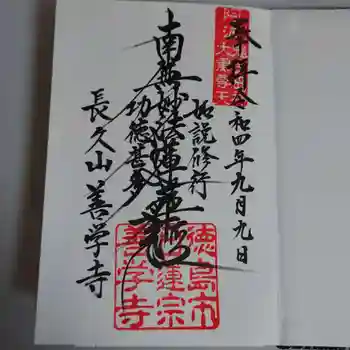 奉拝
令和四年九月九日
如説修行
南無妙法蓮華経
功徳甚多
長久山善学寺
徳島市
日蓮宗
善学寺